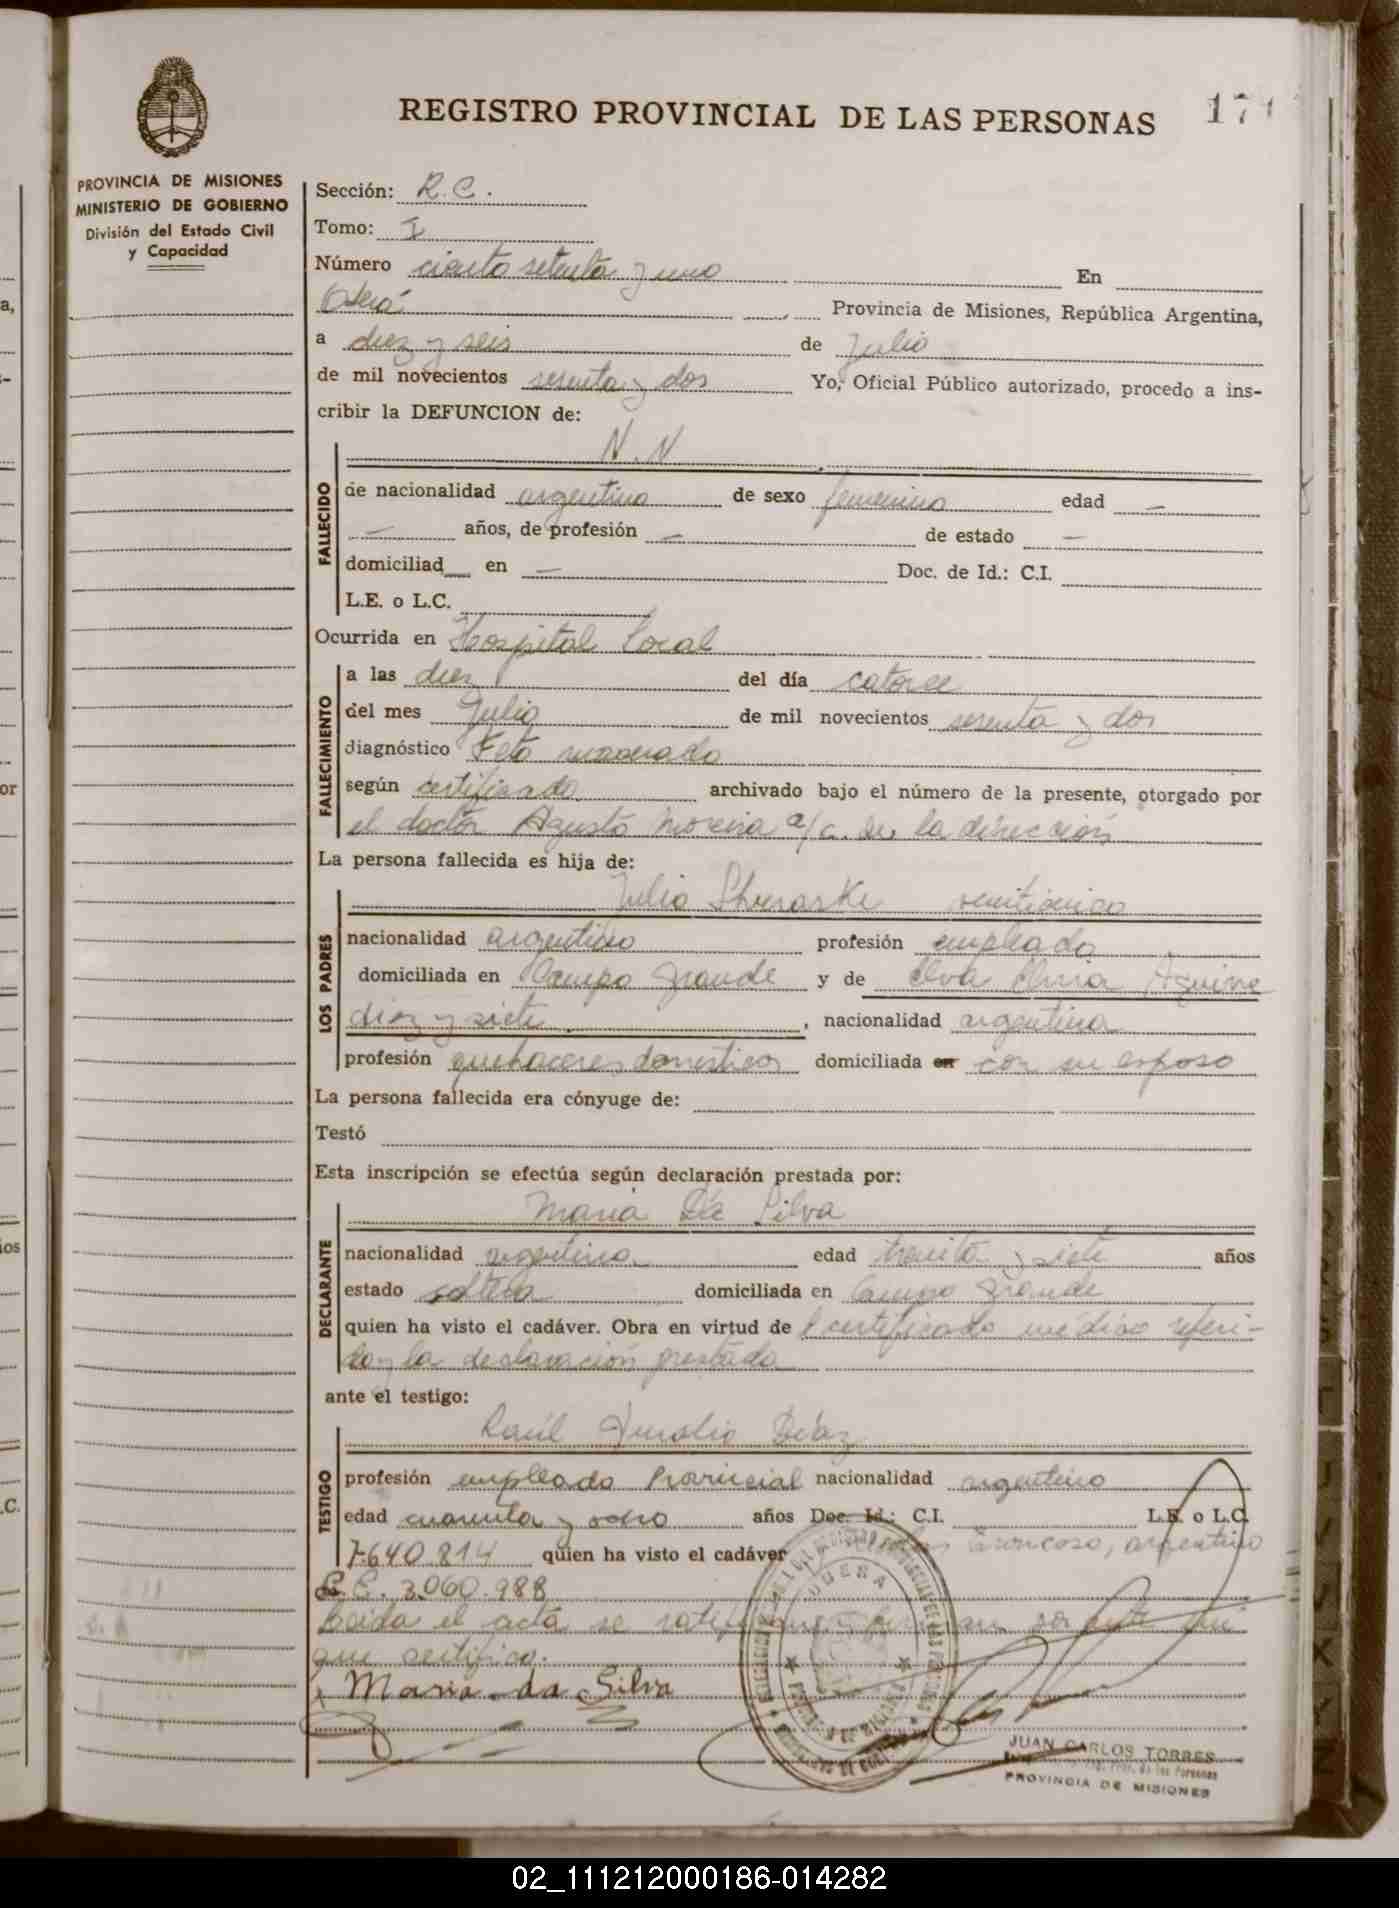 REGISTRO PROVINCIAL DE LAS PERSONAS
171
PROVINCIA DE MISIONES
MINISTERIO DE GOBIERNO
División del Estado Civil
y Capacidad
Sección: R.C.
Tomo: I
Número ciento setenta y uno En
Oberá Provincia de Misiones, República Argentina,
a diez y seis de Julio
de mil novecientos sesenta y dos Yo, Oficial Público autorizado, procedo a ins-
cribir la DEFUNCION de:
N. N
FALLECIDO
de nacionalidad argentina de sexo femenino edad —
— años, de profesión — de estado —
domiciliad__ en — Doc. de Id.: C.I.
L.E. o L.C.
Ocurrida en Hospital Local
FALLECIMIENTO
a las diez del día catorce
del mes Julio de mil novecientos sesenta y dos
diagnóstico Feto macerado
según certificado archivado bajo el número de la presente, otorgado por
el doctor Agusto a/c. de la dirección
La persona fallecida es hija de:
LOS PADRES
Julio
nacionalidad argentino profesión empleado
domiciliada en Campo Grande y de Elva
diez y siete, nacionalidad argentina
profesión quehaceres domesticos domiciliada en con su esposo
La persona fallecida era cónyuge de:
Testó
Esta inscripción se efectúa según declaración prestada por:
DECLARANTE
Maria Da Silva
nacionalidad argentina edad treinta y siete años
estado soltera domiciliada en Campo Grande
quien ha visto el cadáver. Obra en virtud de l certificado medico referi-
do y la declaración prestada
ante el testigo:
TESTIGO
Raúl Aurelio Diaz
profesión empleado Provincial nacionalidad argentino
edad cuarenta y ocho años Doc. Id.: C.I. L.E. o L.C.
7.640.814 quien ha visto el cadáver Troncoso, argentino
L.E. 3.060.988
Leida el acta se ratifican y firman por ante mi
que certifico.
Maria da Silva
JUAN CARLOS TORRES
PROVINCIA DE MISIONES
02_111212000186-014282